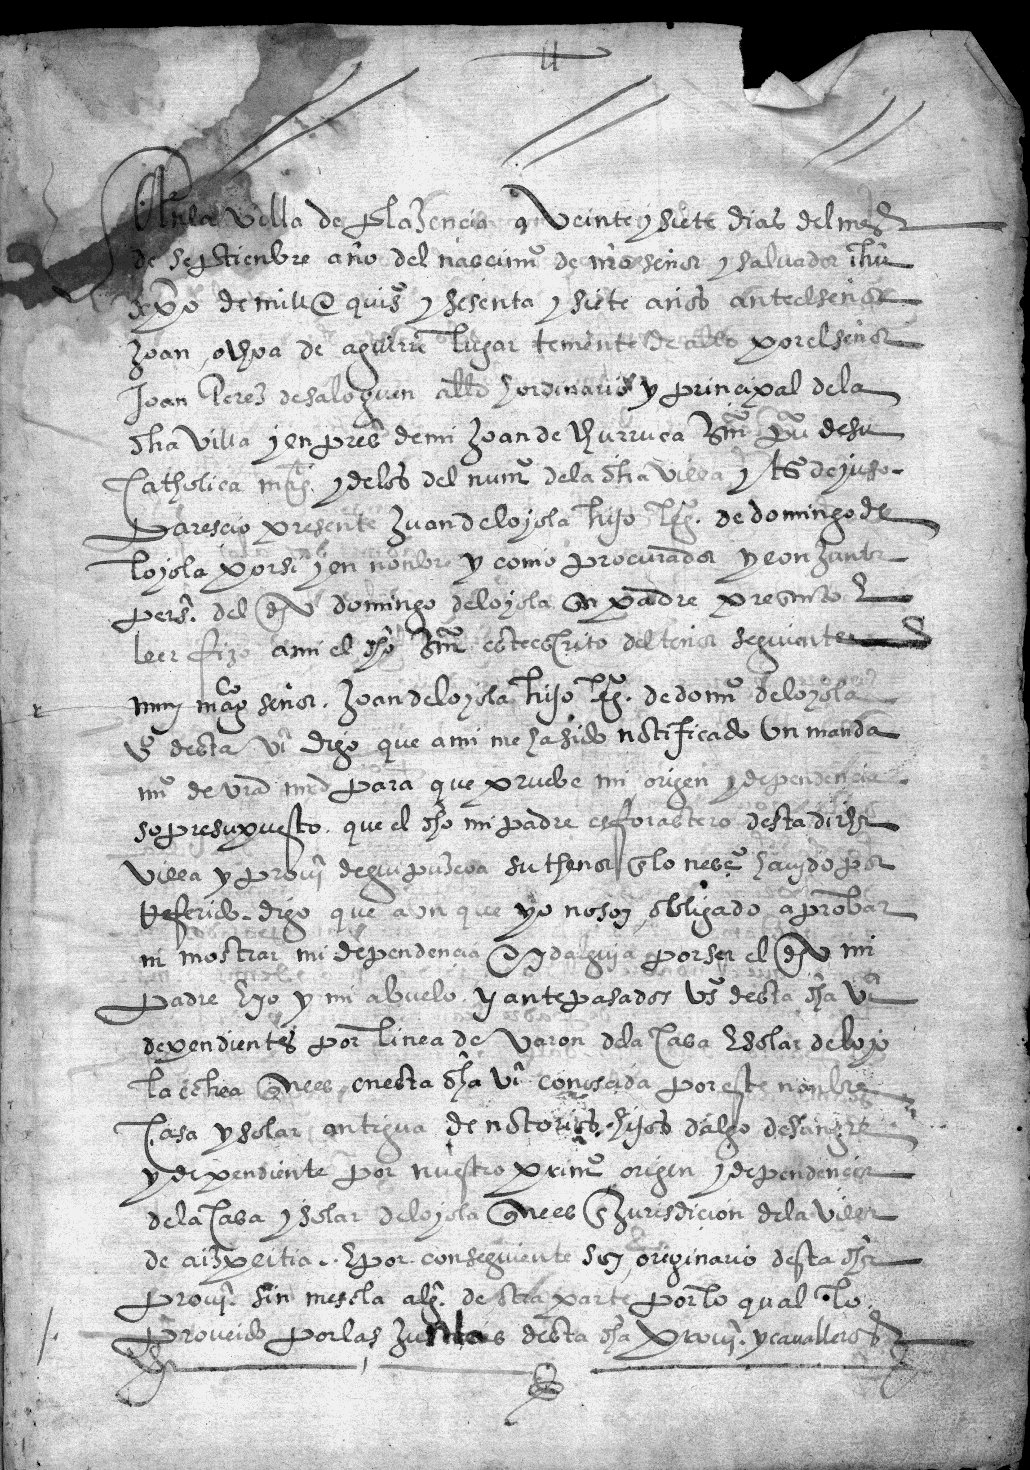 En la villa de plazencia a veinte y siete dias del mes
de septienbre año del nascimiº de nrõ señor y salvador ihũ
xpõ de mill e quisº y sesenta y siete años ante el señor
Joan ochoa de aguirre lugar teniente de allde por el señor
Joan Perez de saloguen allde hordinario y principal de la
dha villa y en presª de mi Joan de Churruca srnº pũ de su
catholica magᵈ. y de los del numº de la dha villa y tsº de yuso
parescio presente Juan de loyola hijo ltº. de domingo de
loyola por si y en nonbre y como procurador y conJunta
persª. del dhõ domingo de loyola su padre presento e
leer fizo a mi el dhõ srnº este escrito del tenor seguiente
muy magᶜᵒ señor. Joan de loyola hijo ltº. de domº de loyola
vº desta vª digo que a mi me ha sido notificado un manda
mº de vrã mrd para que pruebe mi origen y dependencia
so presupuesto. que el dhõ mi padre es forastero desta dicha
villa y provª de guipuzcoa su thenor lo nesceº havido por
Referido. digo que aun que yo no soy obligado a probar
ni mostrar mi dependencia e ydalguia por ser el dhõ mi
padre e yo y mi abuelo y antepasados vºs desta dha vª
dependientes por linea de varon de la casa e solar de loyo
la que es en esta dha vª conoscida por este nonbre
casa y solar antigua de notorios hijos dalgo de sangre
y dependiente por nuestro primº origen y dependencia
de la casa y solar de loyola que es en Jurisdicion de la villa
de aizpeitia. e por conseguiente soy originario desta dha
provª. sin mescla algª. de otra parte por lo qual lo
proveido por las Juntas desta dha provª. y cavalleros